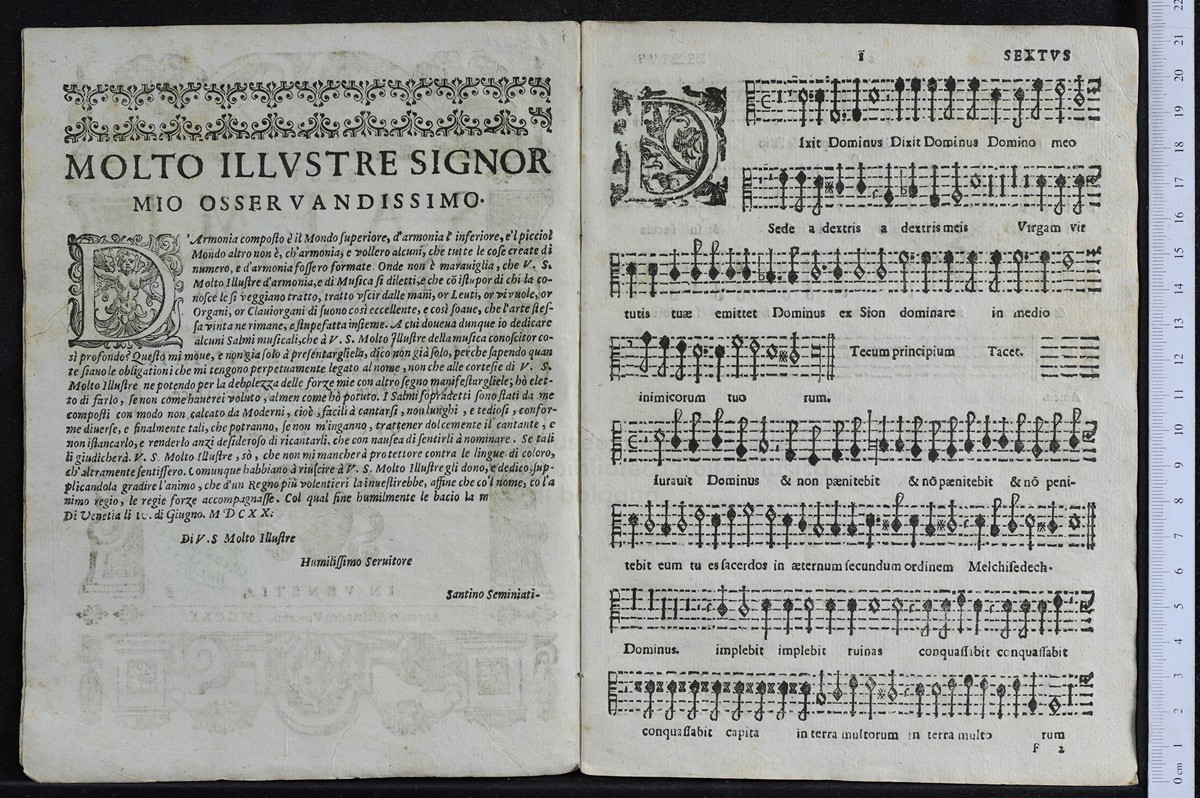 MOLTO ILLVSTRE SIGNOR
MIO OSSERVANDISSIMO.
D'Armonia composto è il Mondo superiore, d'armonia l' inferiore, e'l picciol
Mondo altro non è, ch'armonia, e vollero alcuni, che tutte le cose create di
numero, e d'armonia fossero formate. Onde non è marauiglia, che V. S.
Molto Illustre d'armonia, e di Musica si diletti, e che cō istupor di chi la co-
nosce le si veggiano tratto, tratto vscir dalle mani, or Leuti, or viuuole, or
Organi, or Clauiorgani di suono così eccellente, e così soaue, che l'arte stes-
sa vinta ne rimane, e stupefatta insieme. A cui doueua dunque io dedicare
alcuni Salmi musicali, che à V. S. Molto Illustre della musica conoscitor co-
sì profondo? Questo mi moue, e non già solo à presentargliela, dico non già solo, perche sapendo quan
te siano le obligationi che mi tengono perpetuamente legato al nome, non che alle cortesie di V. S.
Molto Illustre ne potendo per la debolezza delle forze mie con altro segno manifestargliele; hò elet-
to di farlo, se non come hauerei voluto, almen come hò potuto. I Salmi sopradetti sono stati da me
composti con modo non calcato da Moderni, cioè, facili à cantarsi, non lunghi, e tediosi, confor-
me diuerse, e finalmente tali, che potranno, se non m'inganno, trattener dolcemente il cantante, e
non istancarlo, e renderlo anzi desideroso di ricantarli, che con nausea di sentirli à nominare. Se tali
li giudicherà. V. S. Molto Illustre, sò, che non mi mancherà protettore contra le lingue di coloro,
ch'altramente sentissero. Comunque habbiano à riuscire à V. S. Molto Illustre gli dono, e dedico, sup-
plicandola gradire l'animo, che d'un Regno più volentieri la inuestirebbe, affine che co'l nome, co l'a
nimo regio, le regie forze accompagnasse. Col qual fine humilmente le bacio la m
Di Venetia li di Giugno. M DC XX.
Di V. S Molto Illustre
Humilissimo Seruitore
Santino Seminiati-
1 SEXTVS
DIxit Dominus Dixit Dominus Domino meo
Sede a dextris a dextris meis Virgam vir
tutis tuæ emittet Dominus ex Sion dominare in medio
Tecum principium Tacet.
inimicorum tuo rum.
Iurauit Dominus & non pænitebit & nō pænitebit & nō peni-
tebit eum tu es sacerdos in æternum secundum ordinem Melchisedech.
Dominus. implebit implebit ruinas conquassabit conquassabit
conquassabit capita in terra multorum in terra multo rum
F 2